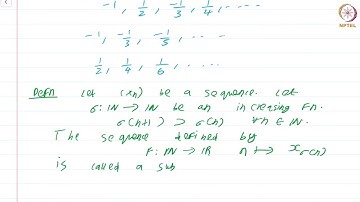 NPTEL
-1, 1/2, -1/3, 1/4, ----
-1, -1/3, -1/5, ...
1/2, 1/4, 1/6, ....
Defn Let (xn) be a sequence. Let
σ: IN → IN be an increasing Fn.
σ(n+1) > σ(n) ∀ n ∈ IN.
The sequence defined by
F: IN → IR n ↦ xσ(n)
is called a sub